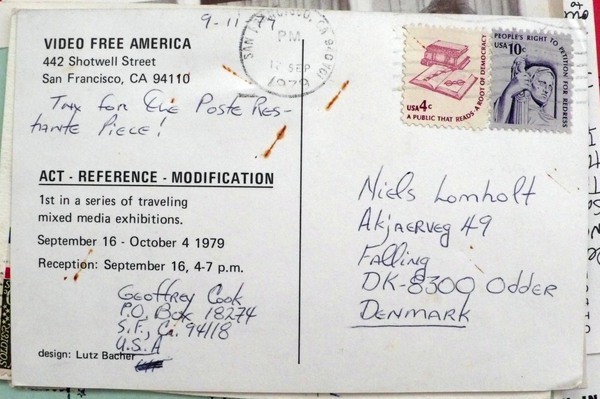 9-11-79
VIDEO FREE AMERICA
442 Shotwell Street
San Francisco, CA 94110
Tnx for the Poste Res-
tante Piece!
ACT - REFERENCE - MODIFICATION
1st in a series of traveling
mixed media exhibitions.
September 16 - October 4 1979
Reception: September 16, 4-7 p.m.
Geoffrey Cook
P.O. Box 18274
S.F., Ca. 94118
U.S.A
design: Lutz Bacher
SAN FRANCISCO, CA
PM
12 SEP
1979
USA 4c
A PUBLIC THAT READS · A ROOT OF DEMOCRACY
PEOPLE'S RIGHT TO PETITION FOR REDRESS
USA 10c
Niels Lomholt
Akjaerveg 49
Falling
DK-8300 Odder
DENMARK
SOLDIER